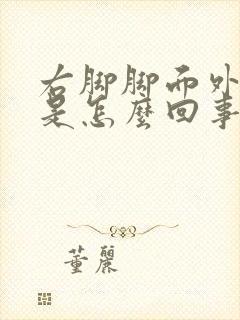 右脚脚而外
是怎麼回事
董麗